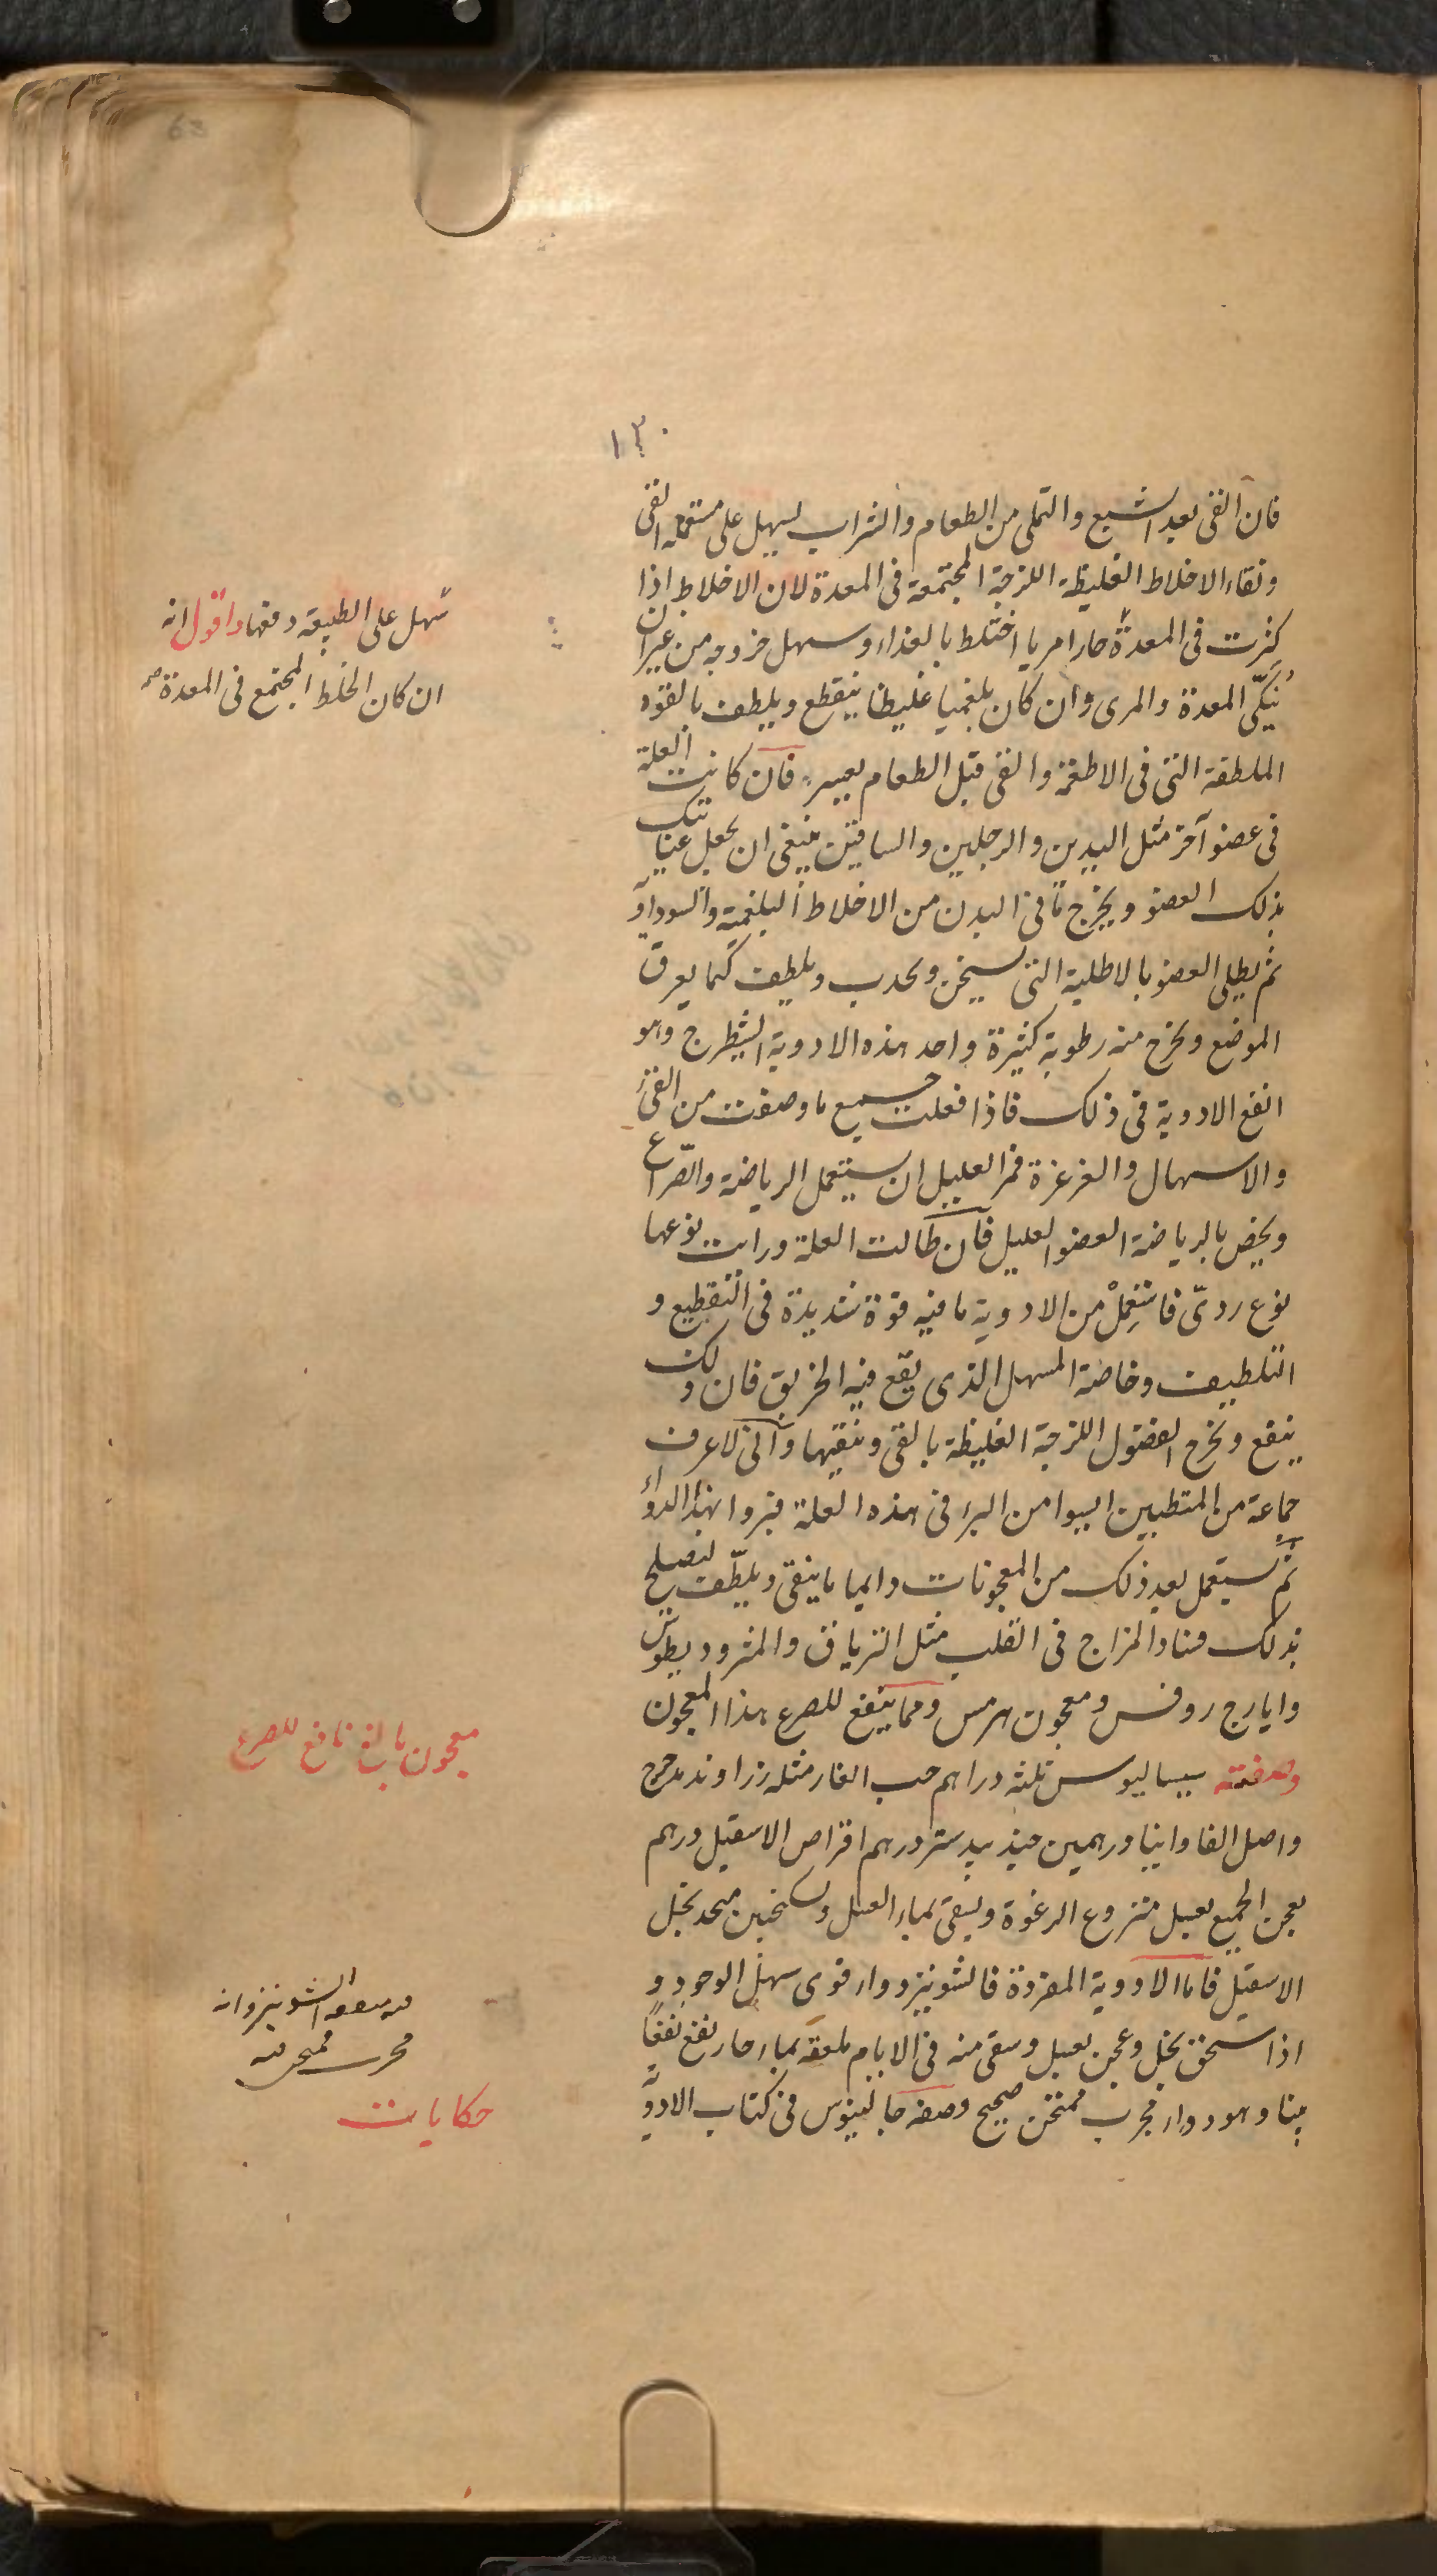 ١٣٠
فان القى بعد الشبع والتملى من الطعام والشراب يسهل على مستعمله القى
ونقاء الاخلاط الغليظة اللزجة المجتمعة فى المعدة لان الاخلاط اذا
كثرت فى المعدة حارا مريا اختلط بالغذاء وسهل خروجه من غير ان
يُنكّى المعدة والمرى وان كان بلغميا غليظا ينقطع ويلطف بالقوه
الملطفة التى فى الاطعمة والقى قبل الطعام يعسر فان كانت العلة
فى عضو آخر مثل اليدين والرجلين والساقين ينبغى ان يجعل عنايتك
بذلك العضو ويخرج ما فى البدن من الاخلاط البلغمية والسوداوية
ثم يطلى العضو بالاطلية التى تسخن وتجذب وتلطف كيما يعرق
الموضع ويخرج منه رطوبة كثيرة واحد هذه الادوية الشيطرج وهو
انفع الادوية فى ذلك فاذا فعلت جميع ما وصفت من القى
والاسهال والغرغرة فمر العليل ان يستعمل الرياضة والصراع
ويخص بالرياضة العضو العليل فان طالت العلة ورايت نوعها
نوع ردىّ فاستعمِلْ من الادوية ما فيه قوة شديدة فى التقطيع و
التلطيف وخاصة المسهل الذى يقع فيه الخربق فان ذلك
ينفع ويخرج الفضول اللزجة الغليظة بالقى وينقيها وانى لاعرف
جماعة من المتطببين ايسوا من البرء فى هذه العلة فبروا بهذا الدواء
ثم يستعمل بعد ذلك من المعجونات دايما ما ينقى ويلطّف ليصلح
بذلك فساد المزاج فى القلب مثل الترياق والمثروديطوس
وايارج روفس ومعجون هرمس ومما ينفع للصرع هذا المعجون
وصفته سيساليوس ثلثة دراهم حب الغار مثله زراوند مدحرج
واصل الفاوانيا درهمين جندبيدستر درهم اقراص الاسقيل درهم
يعجن الجميع بعسل منزوع الرغوة ويسقى بماء العسل وسكنجبين متخذ بخل
الاسقيل فاما الادوية المفردة فالشونيز دواء قوى سهل الوجود و
اذا سحق بخل وعجن بعسل وسقى منه فى الايام ملعقه بماء حار نفع نفعًا
بينا وهو دواء مجرب ممتحن صحيح وصفه جالينوس فى كتاب الادوية
سَهل على الطبيعه دفعها واقول انه
ان كان الخلط المجتمع فى المعدة صح
معجون بالغ نافع للصرع
الشونيز وانه
مجرب ممتحن فيه
حكايات